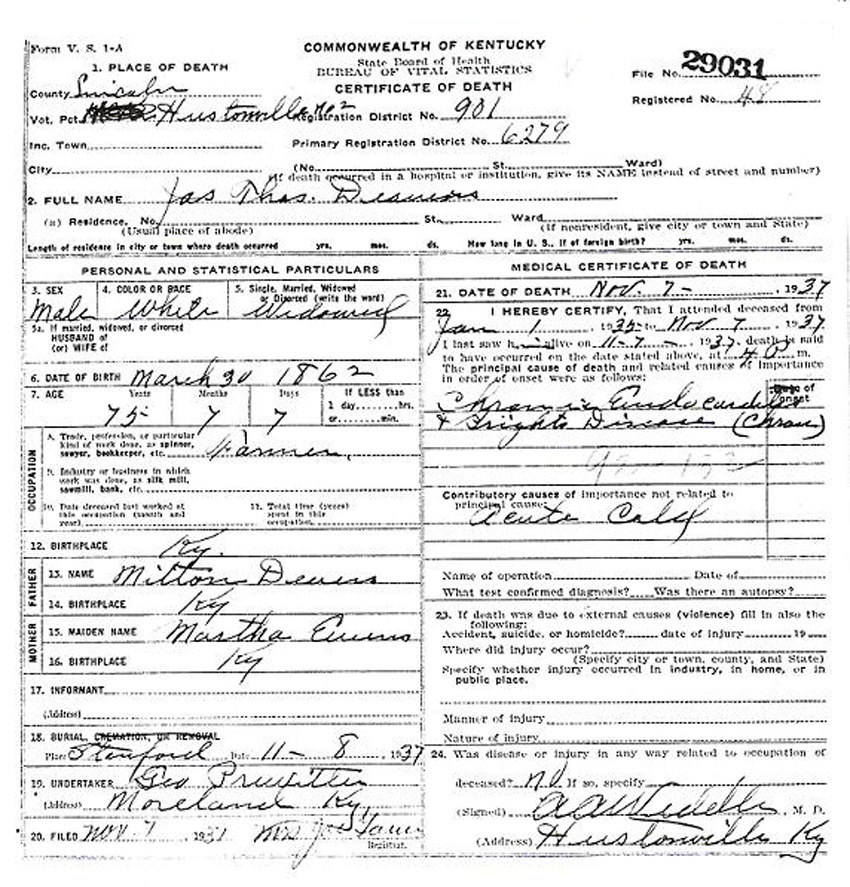 Form V. S. 1-A
COMMONWEALTH OF KENTUCKY
State Board of Health
BUREAU OF VITAL STATISTICS
CERTIFICATE OF DEATH
File No. 29031
Registered No. 48
1. PLACE OF DEATH
County Lincoln
Vot. Pct. Hustonville No 2 Registration District No. 901
Inc. Town Primary Registration District No. 6279
City (No. St. Ward)
(If death occurred in a hospital or institution, give its NAME instead of street and number)
2. FULL NAME Jas Thos.
(a) Residence. No. St. Ward
(Usual place of abode) (If nonresident, give city or town and State)
Length of residence in city or town where death occurred yrs. mos. ds. How long in U. S., if of foreign birth? yrs. mos. ds.
PERSONAL AND STATISTICAL PARTICULARS
3. SEX 4. COLOR OR RACE 5. Single, Married, Widowed
or Divorced (write the word)
Male White Widowed
5a. If married, widowed, or divorced
HUSBAND of
(or) WIFE of
6. DATE OF BIRTH March 30 1862
7. AGE Years Months Days If LESS than
1 day, hrs.
or min.
75 7 7
OCCUPATION
8. Trade, profession, or particular
kind of work done, as spinner,
sawyer, bookkeeper, etc. Farmer
9. Industry or business in which
work was done, as silk mill,
sawmill, bank, etc.
10. Date deceased last worked at
this occupation (month and
year)
11. Total time (years)
spent in this
occupation
12. BIRTHPLACE Ky.
FATHER
13. NAME Milton
14. BIRTHPLACE Ky
MOTHER
15. MAIDEN NAME Martha
16. BIRTHPLACE Ky
17. INFORMANT
(Address)
18. BURIAL, CREMATION, OR REMOVAL
Place Stanford Date 11-8 1937
19. UNDERTAKER Geo
(Address) Moreland Ky,
20. FILED Nov 7 1937 Mrs Joe
Registrar.
MEDICAL CERTIFICATE OF DEATH
21. DATE OF DEATH Nov. 7 - , 1937
22. I HEREBY CERTIFY, That I attended deceased from
Jan 1 1935 to Nov 7 1937
I last saw h alive on 11-7- 1937, death is said
to have occurred on the date stated above, at m.
The principal cause of death and related causes of importance
in order of onset were as follows:
Date of
onset
Chronic Endocarditis
& Brights Disease (Chron)
Contributory causes of importance not related to
principal cause:
Acute Cold
Name of operation Date of
What test confirmed diagnosis? Was there an autopsy?
23. If death was due to external causes (violence) fill in also the
following:
Accident, suicide, or homicide? date of injury 19
Where did injury occur?
(Specify city or town, county, and State)
Specify whether injury occurred in industry, in home, or in
public place.
Manner of injury
Nature of injury
24. Was disease or injury in any way related to occupation of
deceased? No If so, specify
(Signed) , M. D.
(Address) Hustonville Ky